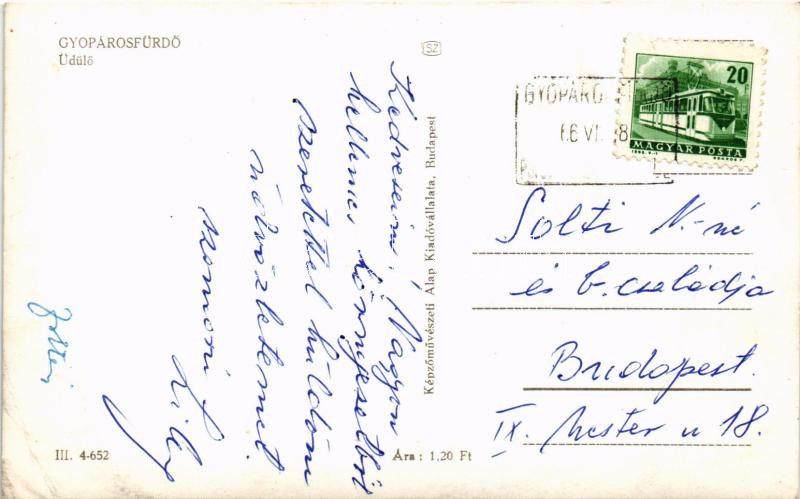 GYOPÁROSFÜRDŐ
Üdülő
SZ
20
MAGYAR POSTA
GYOPÁRO
66 VI. 8
Kedveseim! Nagyon
kellemes környezetből
szeretettel küldöm
üdvözletemet
Képzőművészeti Alap Kiadóvállalata, Budapest
Solti N.-né
és b. családja
Budapest.
IX. Mester u 18.
III. 4-652
Ára : 1,20 Ft